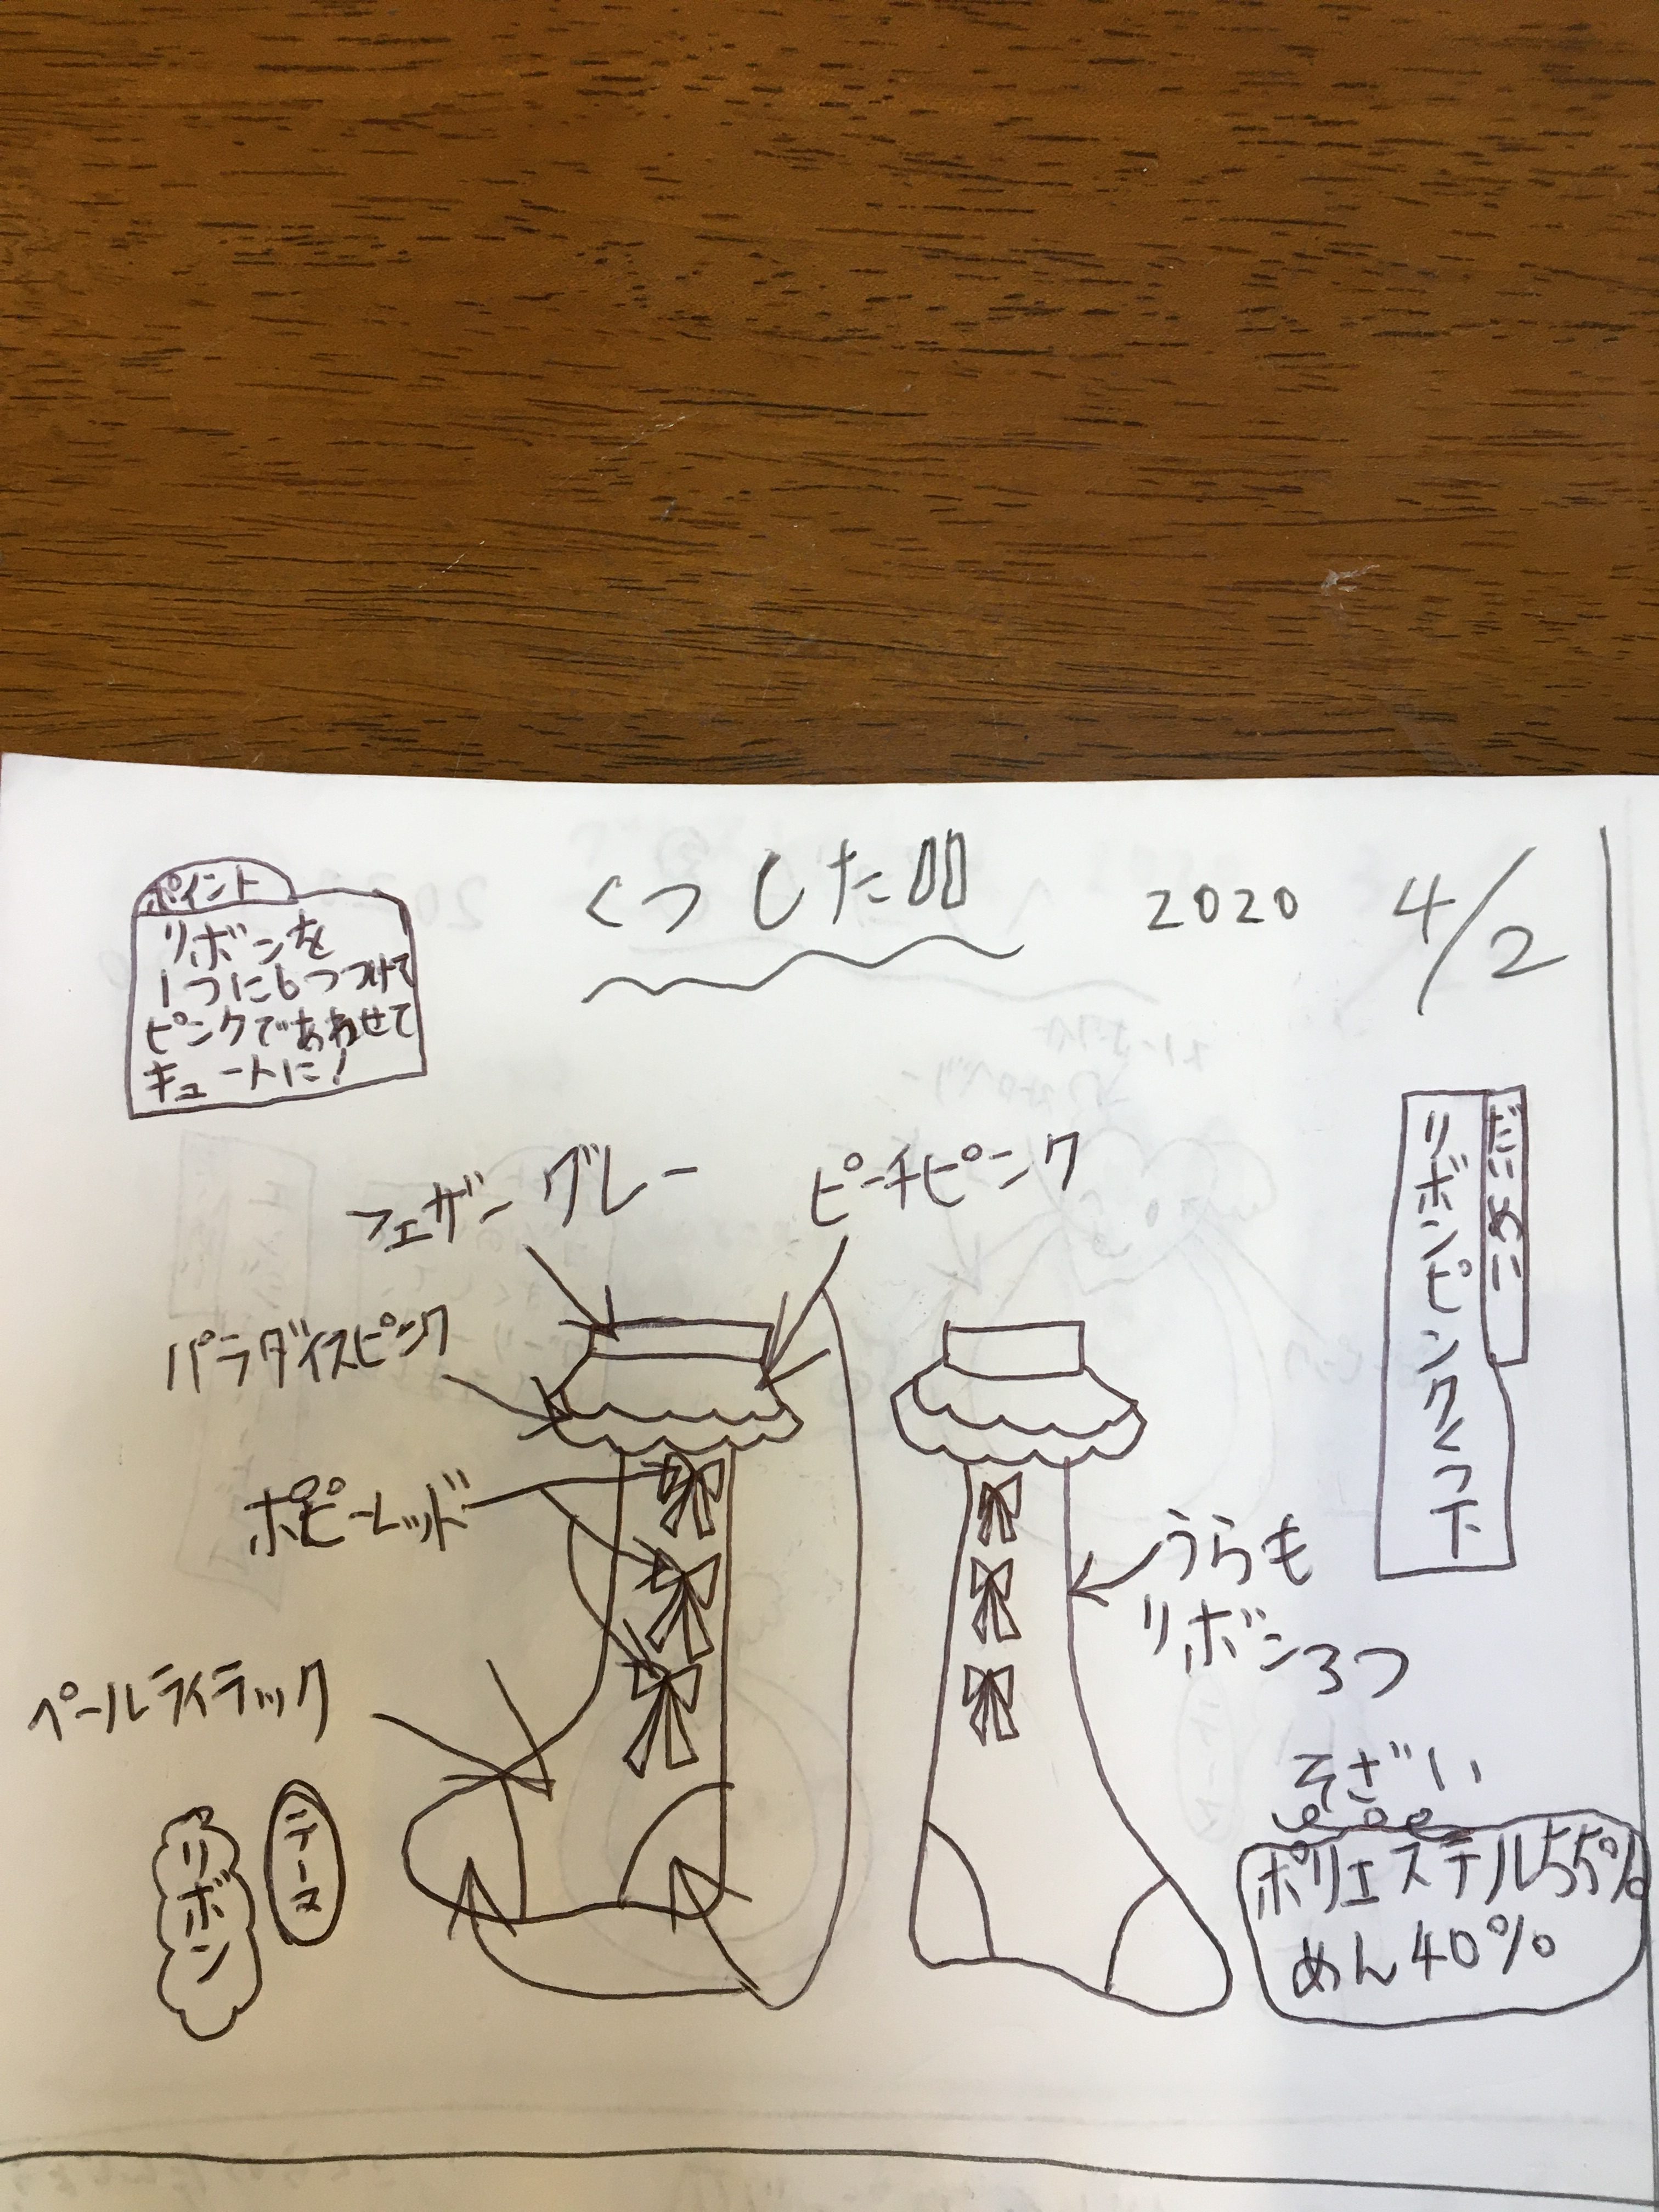 くつした
2020 4/2
ポイント
リボンを
1つに6つつけて
ピンクであわせて
キュートに!
だいめい
リボンピンクくつ下
フェザーグレー
ピーチピンク
パラダイスピンク
ポピーレッド
ペールライラック
うらも
リボン3つ
テーマ
リボン
そざい
ポリエステル55%
めん40%